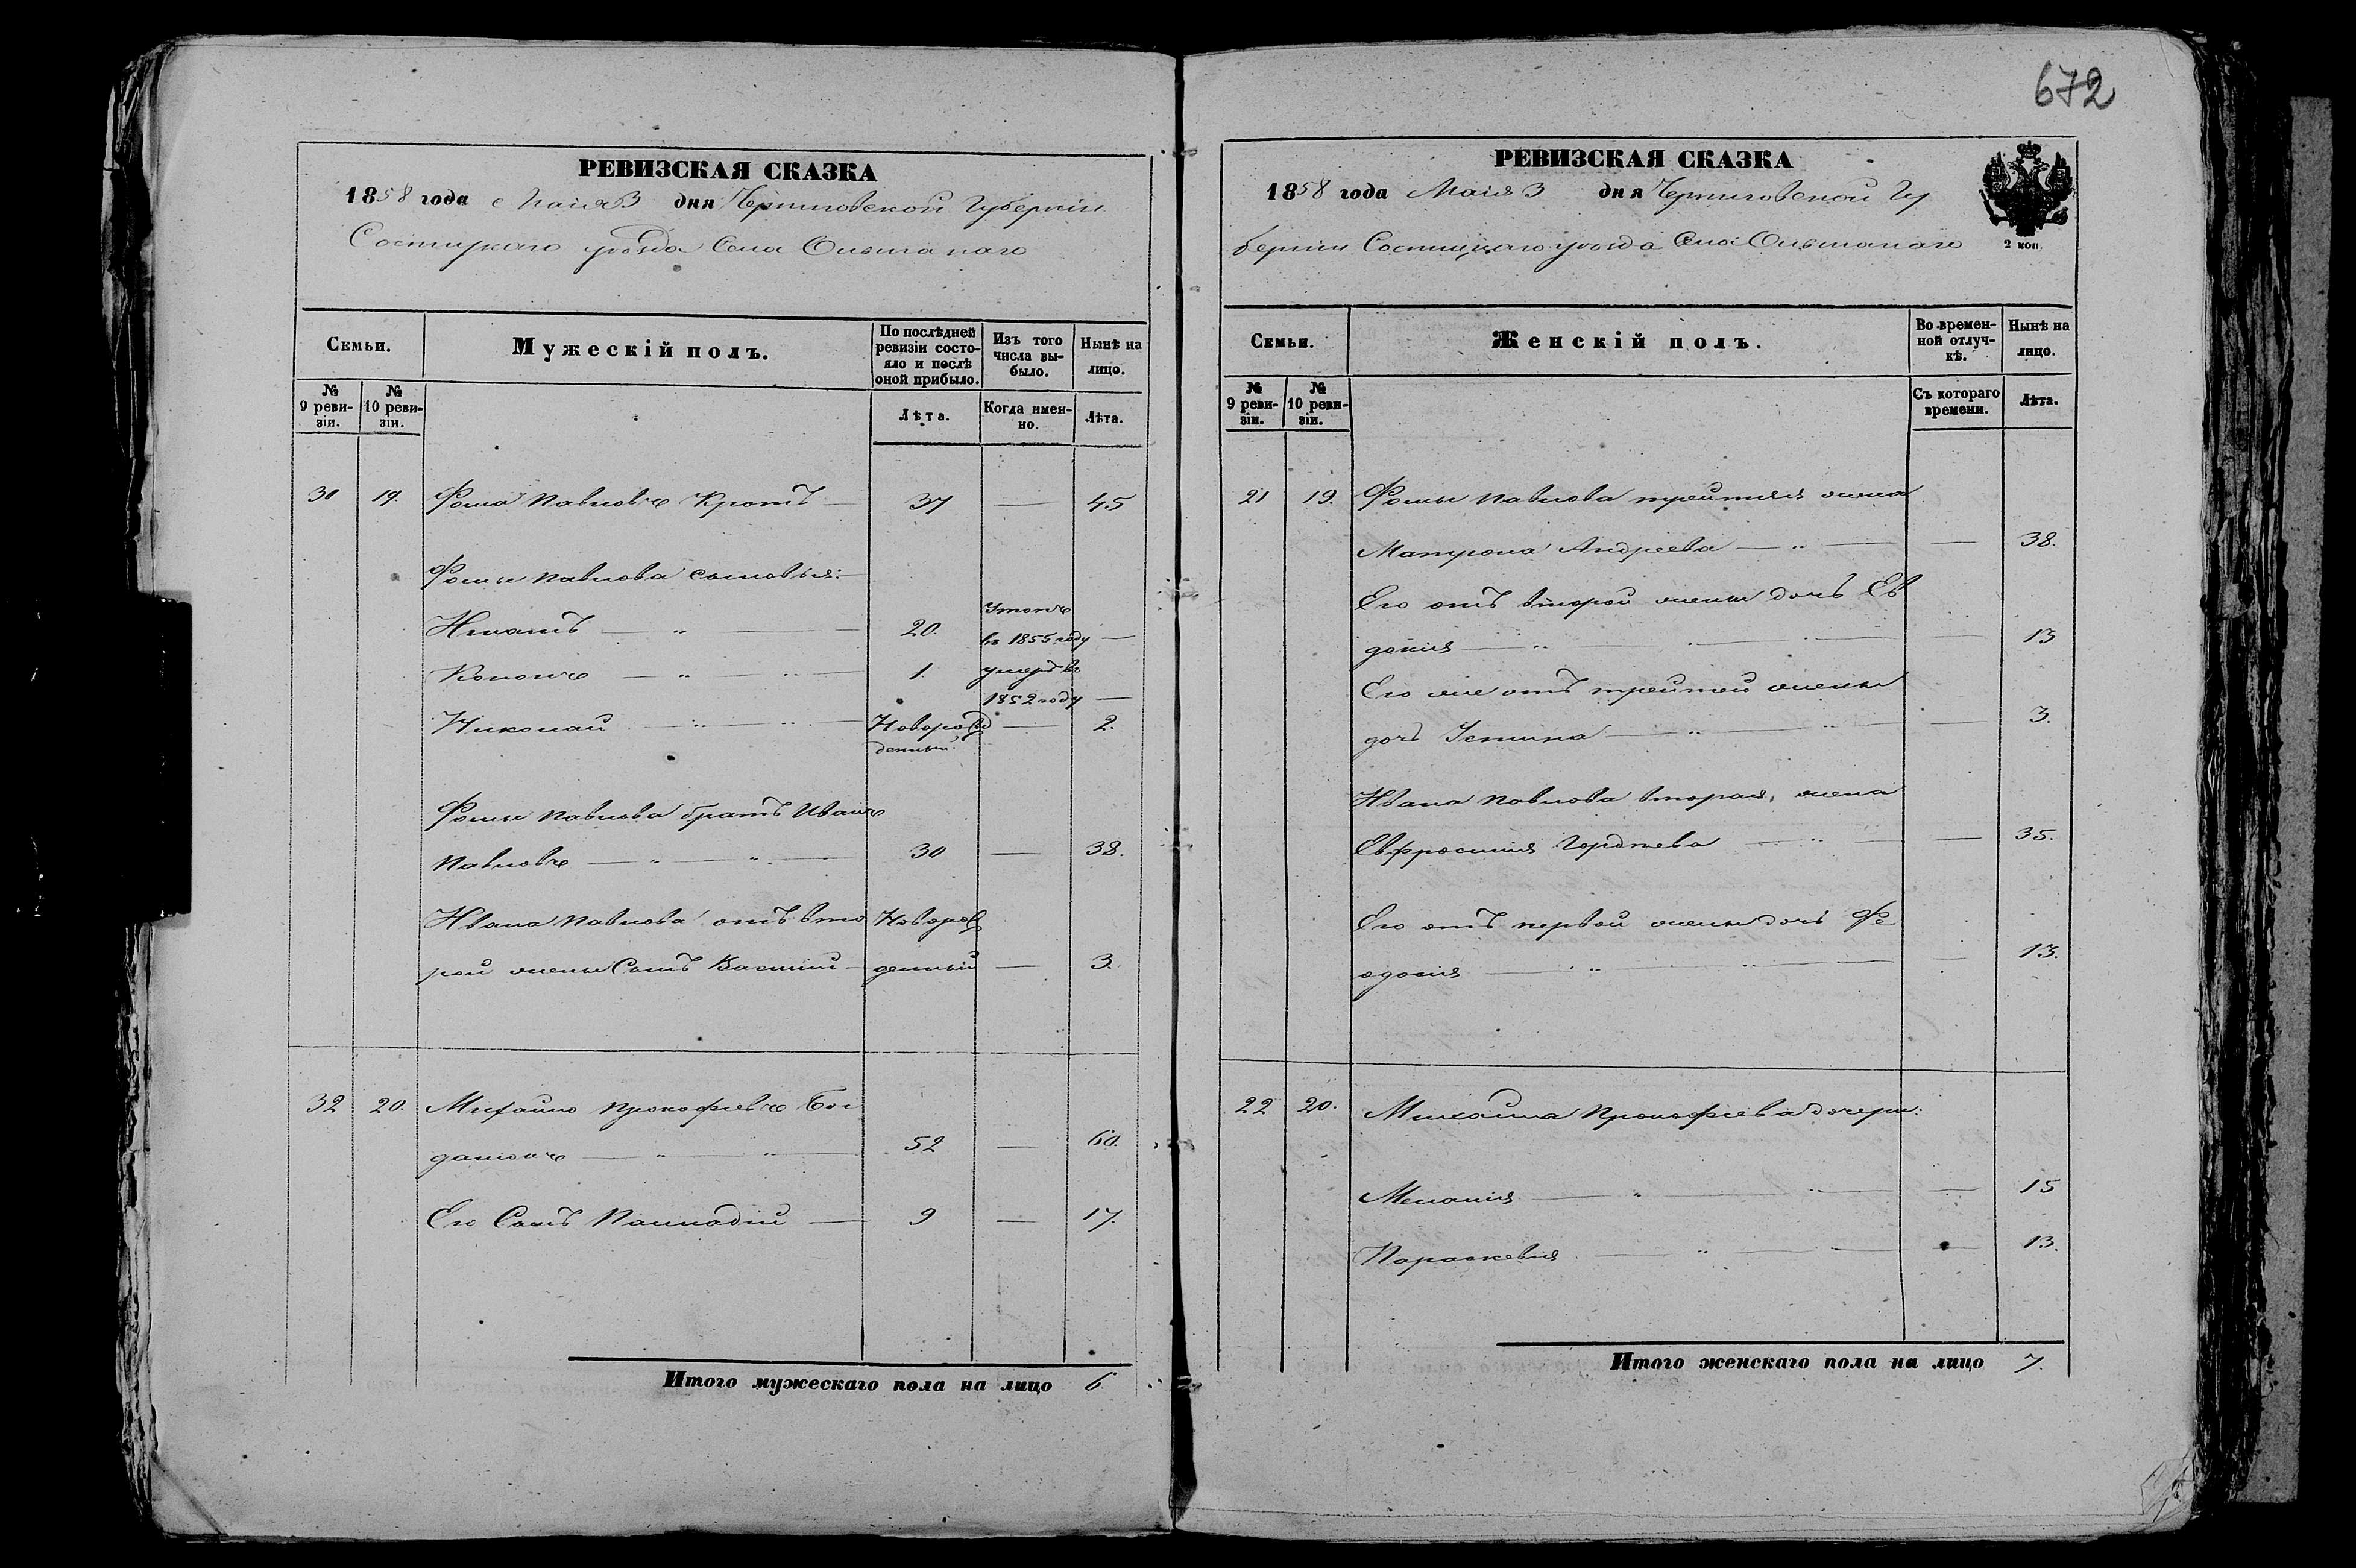 672
РЕВИЗСКАЯ СКАЗКА
1858 года Маія 3 дня Черниговской Губерніи
Сосницкаго уѣзда Села Ольшанаго
Семьи.
Мужескій полъ.
По послѣдней ревизіи состояло и послѣ оной прибыло.
Изъ того числа выбыло.
Нынѣ на лицо.
№ 9 ревизіи.
№ 10 ревизіи.
Лѣта.
Когда именно.
Лѣта.
30 19. Фома Павловъ Кротъ — 37 — 45
Фомы Павлова сыновья:
Игнатъ — " — 20. въ 1855 году —
Кононъ — " — 1. умеръ въ 1852 году —
Николай — " — Новорожденный. — 2.
Фомы Павлова братъ Иванъ
Павловъ — " — 30 — 38.
Ивана Павлова отъ вто Новорож
рой жены Сынъ Василий — денный — 3.
32 20. Михайло Прокофьевъ Бог
52 — 60.
Его Сынъ Палладій — 9 — 17.
Итого мужескаго пола на лицо 6.
РЕВИЗСКАЯ СКАЗКА
1858 года Маія 3 дня Черниговской Гу
берніи Сосницкаго уѣзда Села Ольшанаго
2 коп.
Семьи.
Женскій полъ.
Во временной отлучкѣ.
Нынѣ на лицо.
№ 9 ревизіи.
№ 10 ревизіи.
Съ котораго времени.
Лѣта.
21 19. Фомы Павлова третья жена
Матрона Андреева — " — — 38.
Его отъ второй жены дочь Ев
докія — " — — 13
Его же отъ третьей жены
дочь Устина — " — — 3.
Ивана Павлова вторая жена
Евфросинія Гордѣева — " — — 35.
Его отъ первой жены дочь Фе
одосія — " — — 13.
22 20. Михайла Прокофьева дочери:
Меланія — " — — 15
Параскевія — " — — 13.
Итого женскаго пола на лицо 7.